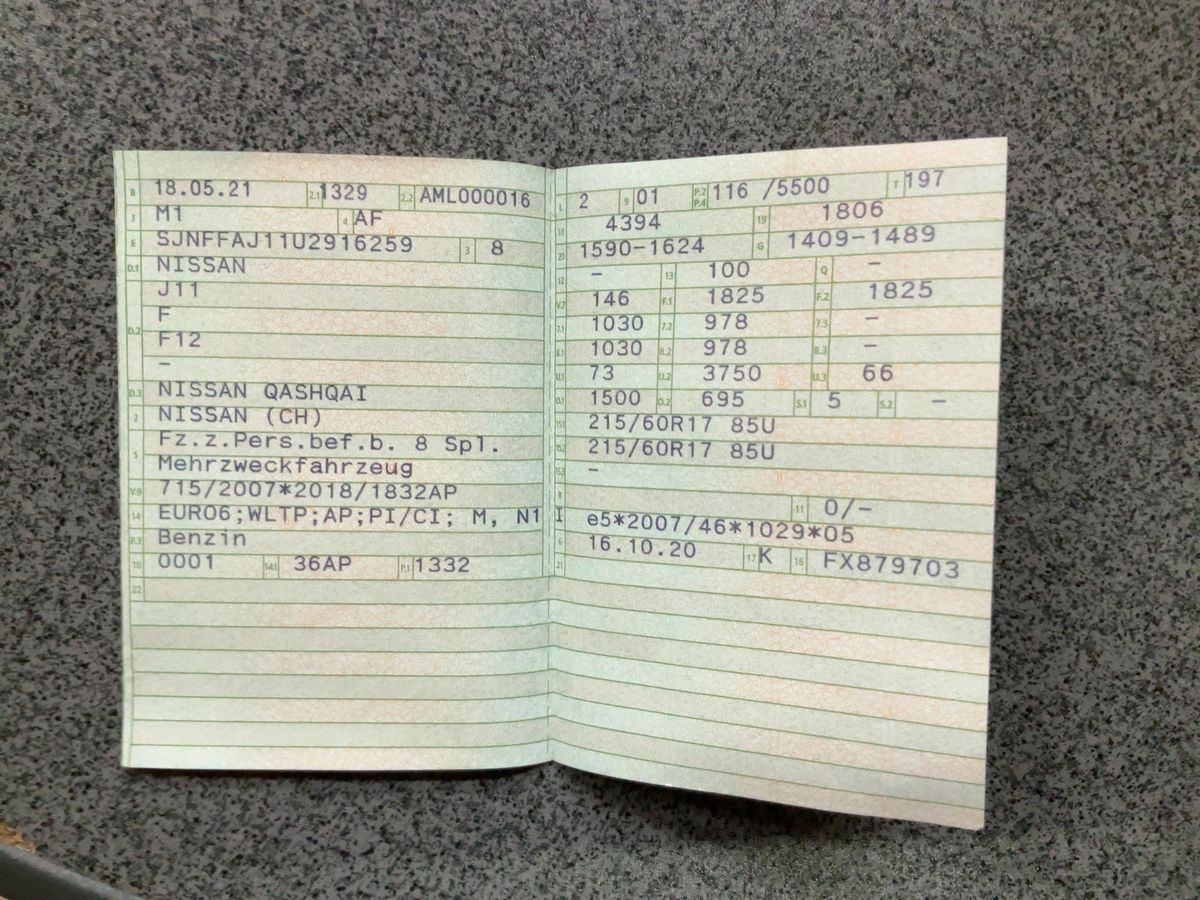 B 18.05.21 2.1 1329 2.2 AML000016
J M1 4 AF
E SJNFFAJ11U2916259 3 8
D.1 NISSAN
J11
D.2 F
F12
–
D.3 NISSAN QASHQAI
2 NISSAN (CH)
5 Fz.z.Pers.bef.b. 8 Spl.
Mehrzweckfahrzeug
V.9 715/2007*2018/1832AP
14 EURO6;WLTP;AP;PI/CI; M, N1 I
P.3 Benzin
10 0001 14.1 36AP P.1 1332
22
L 2 9 01 P.2 P.4 116 /5500 T 197
18 4394 19 1806
20 1590-1624 G 1409-1489
12 – 13 100 Q –
V.7 146 F.1 1825 F.2 1825
7.1 1030 7.2 978 7.3 –
8.1 1030 8.2 978 8.3 –
U.1 73 U.2 3750 U.3 66
O.1 1500 O.2 695 S.1 5 S.2 –
15.1 215/60R17 85U
15.2 215/60R17 85U
15.3 –
R 11 0/–
e5*2007/46*1029*05
6 16.10.20 17 K 16 FX879703
21